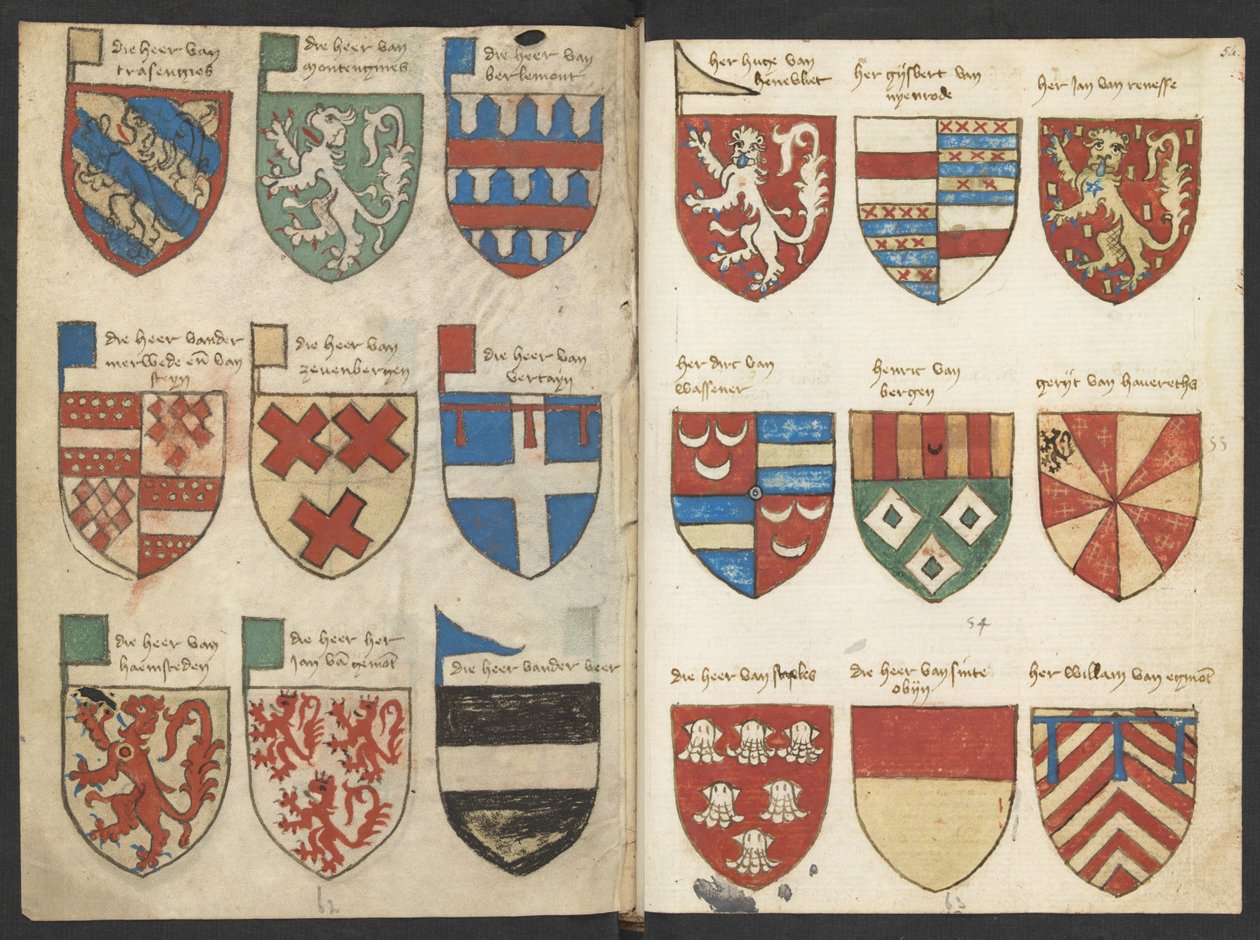 die heer van
trasengies
die heer van
montengnies
die heer van
berlemont
die heer vander
merwede en̄ van
steyn
die heer van
zevenbergen
die heer van
vertayn
die heer van
haemsteden
die heer her
Jan van
die heer vander veer
62
54
her huge van
henevliet
her gijsbert van
nyenrode
her Jan van renesse
her diric van
wassener
henric van
bergen
gerijt van havereths
55
54
die heer van
die heer van sinte
obijn
her willam van egmōt
63